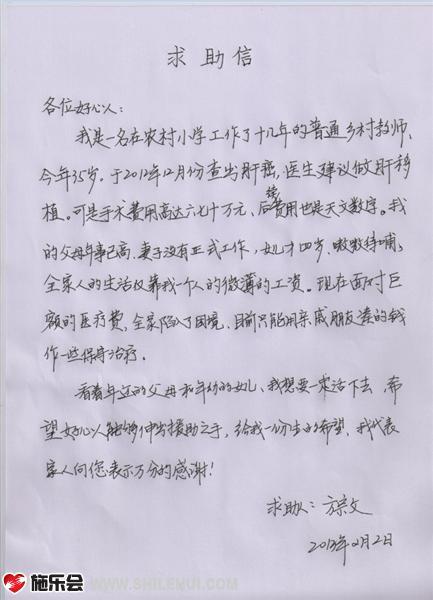 求助信
各位好心人：
我是一名在农村小学工作了十几年的普通乡村教师，
今年35岁。于2012年12月份查出肝癌，医生建议做肝移
植。可是手术费用高达六七十万元，后续费用也是天文数字。我
的父母年事已高、妻子没有正式工作，女儿才四岁、嗷嗷待哺，
全家人的生活仅靠我一个人的微薄的工资。现在面对巨
额的医疗费、全家陷入了困境、目前只能用亲戚朋友凑的钱
作一些保守治疗。
看着年迈的父母和年幼的女儿、我想要一定活下去，希
望好心人能够伸出援助之手，给我一份生的希望，我代表
家人向您表示万分的感谢！
求助人：方宗文
2013年2月2日
施乐会
WWW.SHILEHUI.COM